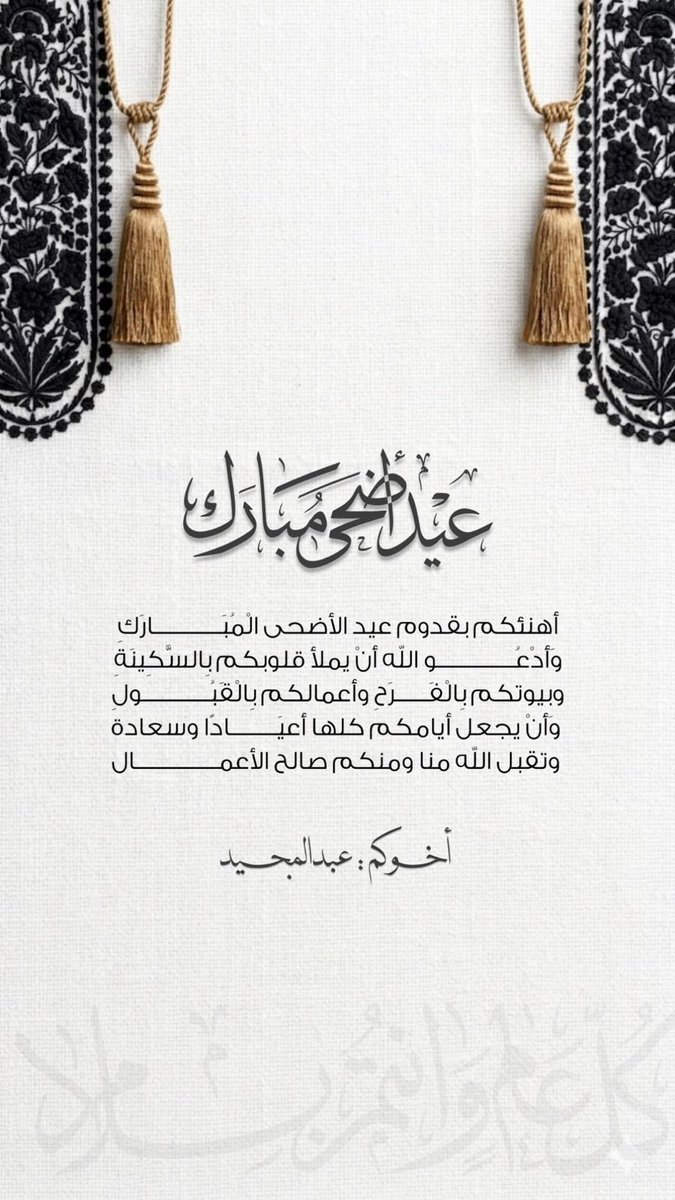 عيد أضحى مُبَارَك
أهنئكم بقدوم عيد الأضحى الْمُبَــــــارَكِ
وَأَدْعُــــــو اللّٰه أنْ يملأ قلوبكم بِالسَّكِينَةِ
وبيوتكم بِالْفَــــرَحِ وأعمالكم بِالْقَبُـــــولِ
وَأنْ يجعل أيامكم كلها أعيَــــادًا وسعادة
وتقبل اللّٰه منا ومنكم صالح الأعمــــــــال
أخــوكم : عبدالمجـيد
كُل عَام وَانتُم بِسلام